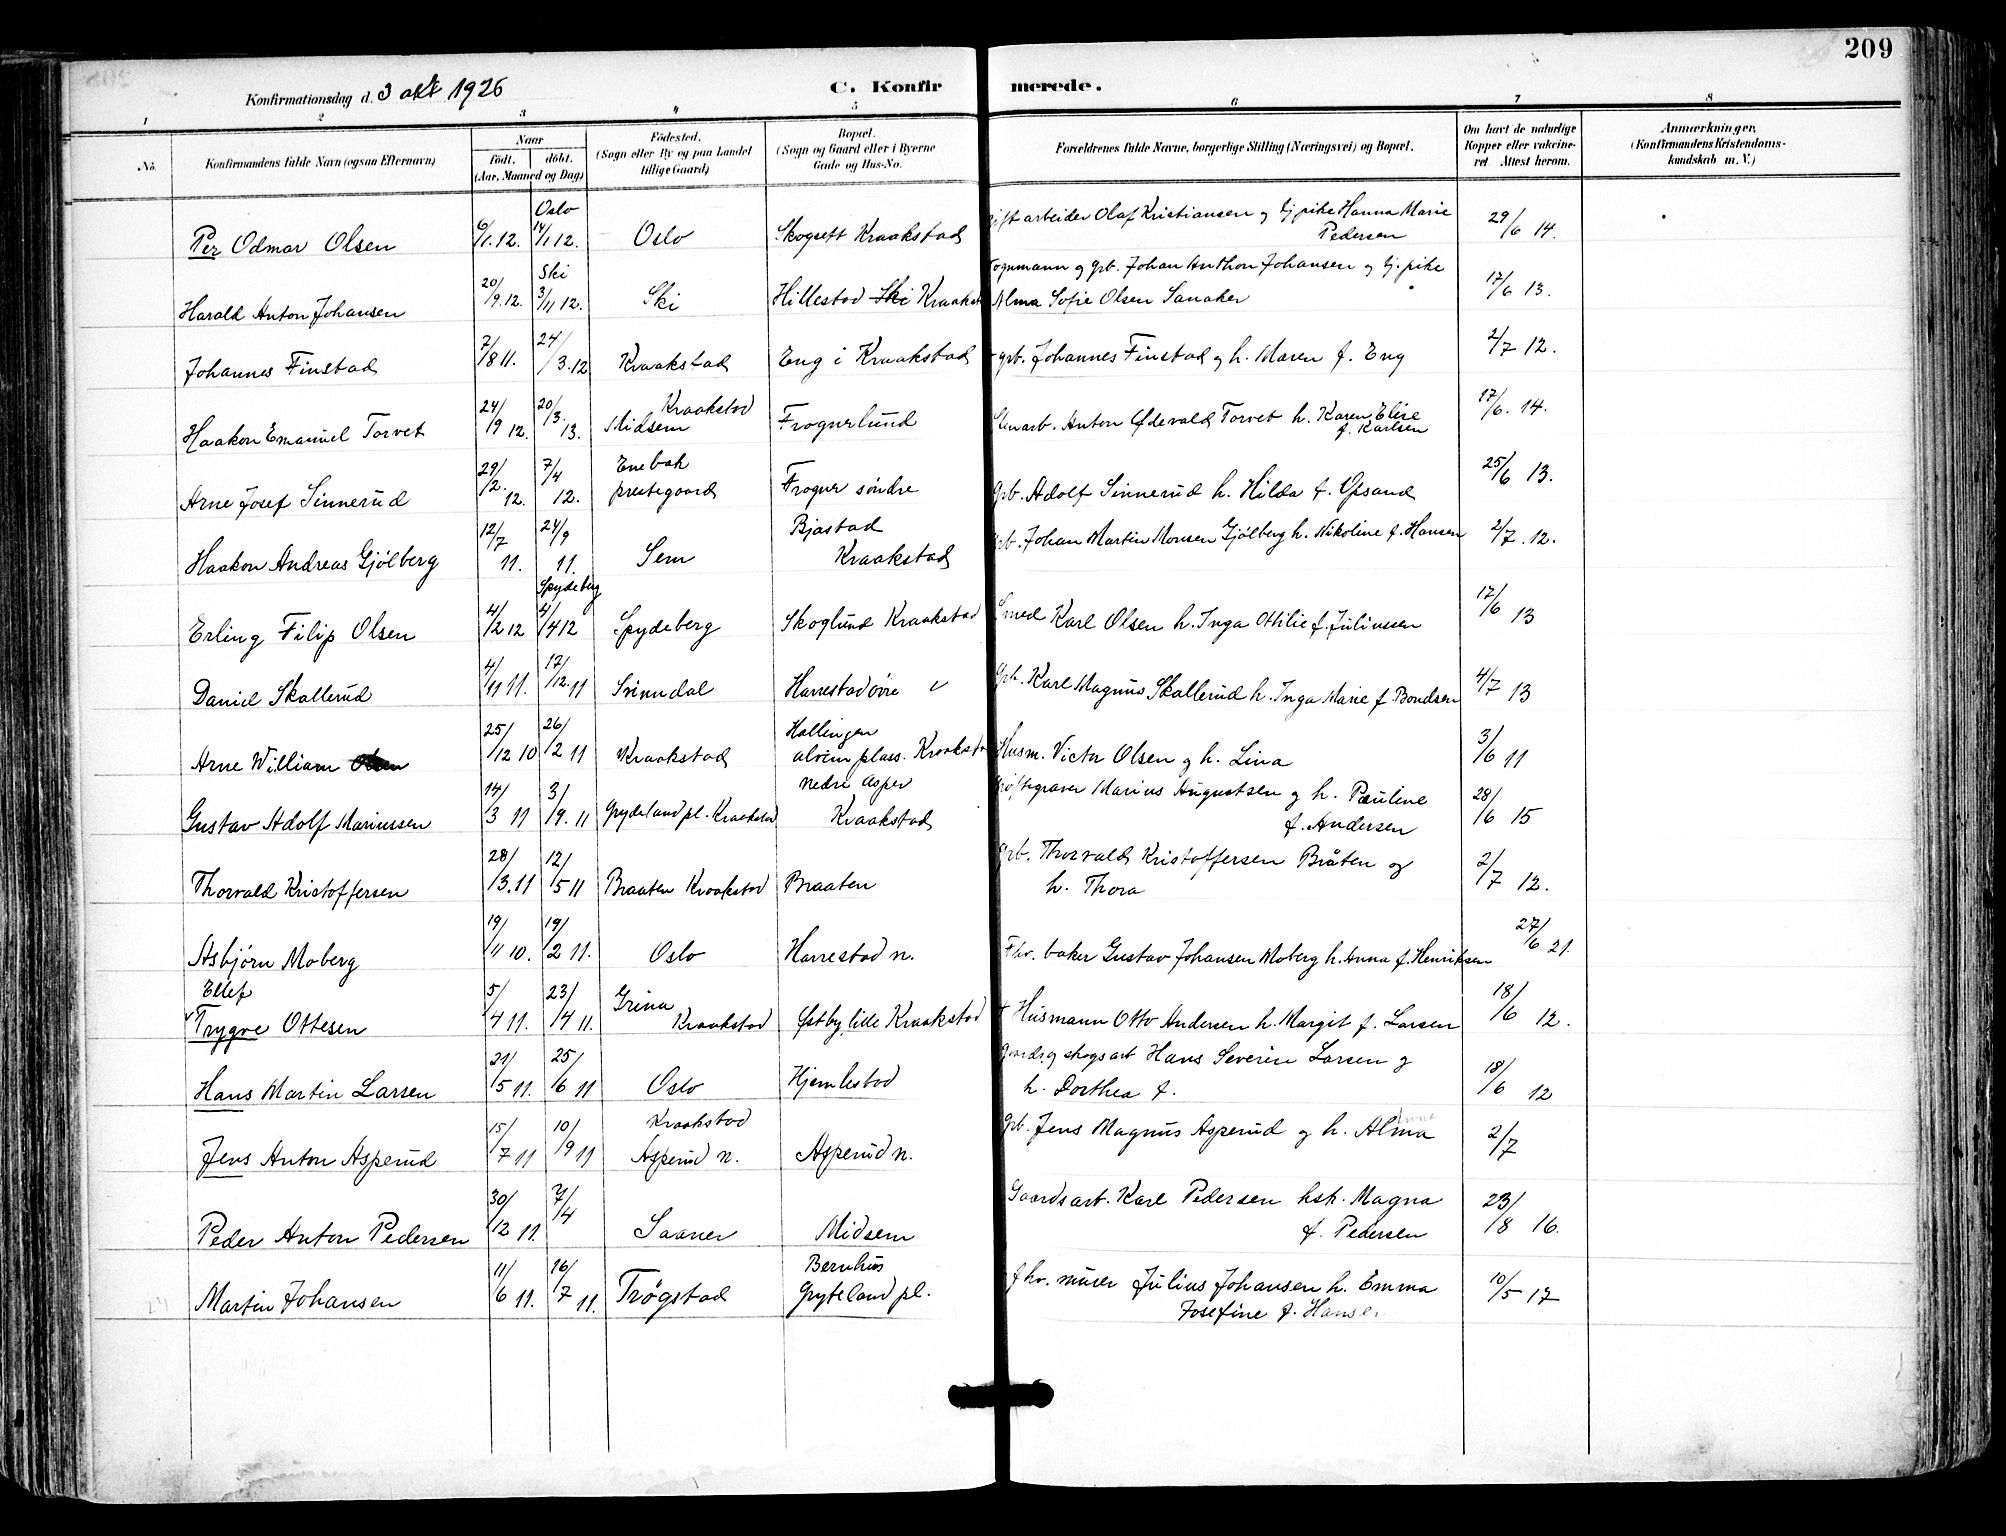 209
Konfirmationsdag d. 3 okt 1926
C. Konfirmerede.
1 2 3 4 5 6 7 8
No.
Konfirmandens fulde Navn (ogsaa Efternavn)
Naar
födt. döbt.
(Aar, Maaned og Dag)
Födested.
(Sogn eller By og paa Landet
tillige Gaard)
Bopæl.
(Sogn og Gaard eller i Byerne
Gade og Hus-No.
Forældrenes fulde Navne, borgerlige Stilling (Næringsvei) og Bopæl.
Om havt de naturlige
Kopper eller vakcine-
ret Attest herom.
Anmærkninger.
(Konfirmandens Kristendoms-
kundskab m. V.)
Oslo
Per Odmar Olsen 6/1.12. 14/1 12. Oslo Skogsett Kraakstad arbeider Olaf Kristiansen og pike Hanna Marie 29/6 14.
Pedersen
Ski
Harald Anton Johansen 20/9.12. 3/11 12. Ski Hillestad Ski Kraakst grb. Johan Anthon Johansen og pike 17/6 13.
Alma Sofie Olsen Sanaker
Johannes Finstad 7/8 11. 24/3.12 Kraakstad Eng i Kraakstad grb. Johannes Finstad og h. Maren f. Eng 2/7 12.
Kraakstad
Haakon Emanuel Torvet 24/9 12. 20/3. 13. Midsem Frognerlund Anton Ødevald Torvet h. Karen Elise 17/6. 14.
f. Karlsen
Enebak
Arne Josef Sinnerud 29/2. 12. 7/4 12. prestegaard Frogner søndre grb. Adolf Sinnerud h. Hilda f. Opsand 25/6 13.
Bjastad
Haakon Andreas Gjølberg 12/7 11. 24/9 11. Sem Kraakstad grb. Johan Martin Monsen Gjølberg h. Nikoline f. Hansen 2/7.12.
Spydeberg
Erling Filip Olsen 4/2 12 4/4 12 Spydeberg Skoglund Kraakstad Smed Karl Olsen h. Inga Othilie f. Juliussen 17/6 13
Daniel Skallerud 4/11 11. 17/12.11 Svinndal Harrestad øvre Grb. Karl Magnus Skallerud h. Inga Marie f. Bondsen 4/7 13
Hallingen
Arne William Olsen 25/12 10 26/2 11 Kraakstad plass. Kraakst Husm. Victor Olsen og h. Lina 3/6 11
nedre Asper
Gustav Adolf Mariussen 14/3 11 3/9. 11 pl. Kraakstad Kraakstad grøftegraver Marius Augustsen og h. Pauline 28/6 15
f. Andersen
Thorvald Kristoffersen 28/3.11 12/5 11 Braaten Kraakstad Braaten grb. Thorvald Kristoffersen Bråten og 2/7 12.
h. Thora
Asbjørn Moberg 19/4 10. 19/2 11. Oslo Harrestad n. Fhv. baker Gustav Johansen Moberg h. Anna f. Henriksen 27/6 21.
Ellef
Trygve Ottesen 5/4 11. 23/4 11. Grina Kraakstad Østby lille Kraakstad + Husmann Otto Andersen h. Margit f. Larsen 18/6 12.
Hans Martin Larsen 21/5 11. 25/6 11 Oslo Hjemlestad gaards og skogsarb Hans Severin Larsen og 18/6 12
h. Dorthea f.
Kraakstad
Jens Anton Asperud 15/7 11 10/9 11 Asperud n. Asperud n. grb. Jens Magnus Asperud og h. Alma 2/7
Peder Anton Pedersen 30/12 11. 7/4 Saaner Midsem Gaardsarb. Karl Pedersen hst. Magna 23/8 16.
f. Pedersen
Bernhus
Martin Johansen 11/6 11. 16/7 11. Trøgstad Gryteland pl. fhv. murer Julius Johansen h. Emma 10/5 17
Josefine f. Hansen